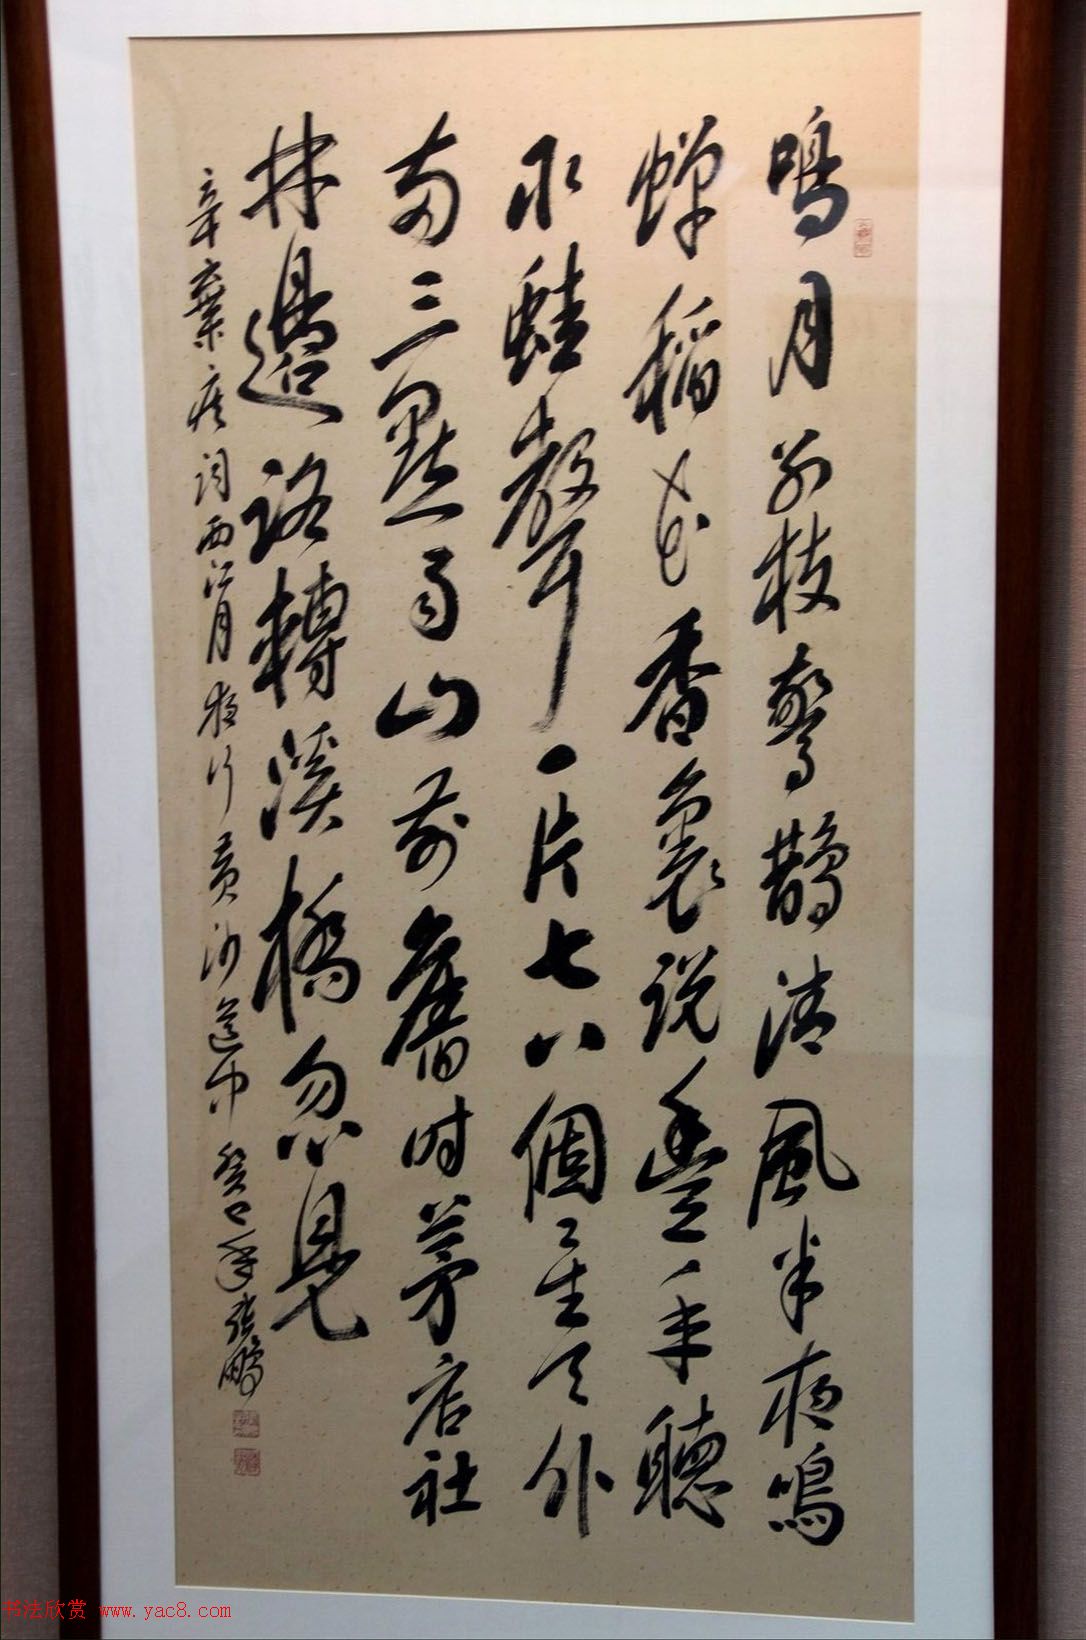 鳴月別枝驚鵲清風半夜鳴
蟬稻花香裏說豐年聽
取蛙聲一片七八個星天外
兩三點雨山前舊时茅店社
林邊路轉溪橋忽見
辛棄疾詞西江月夜行黃沙道中 癸巳年張鵬
书法欣赏 www.yac8.com